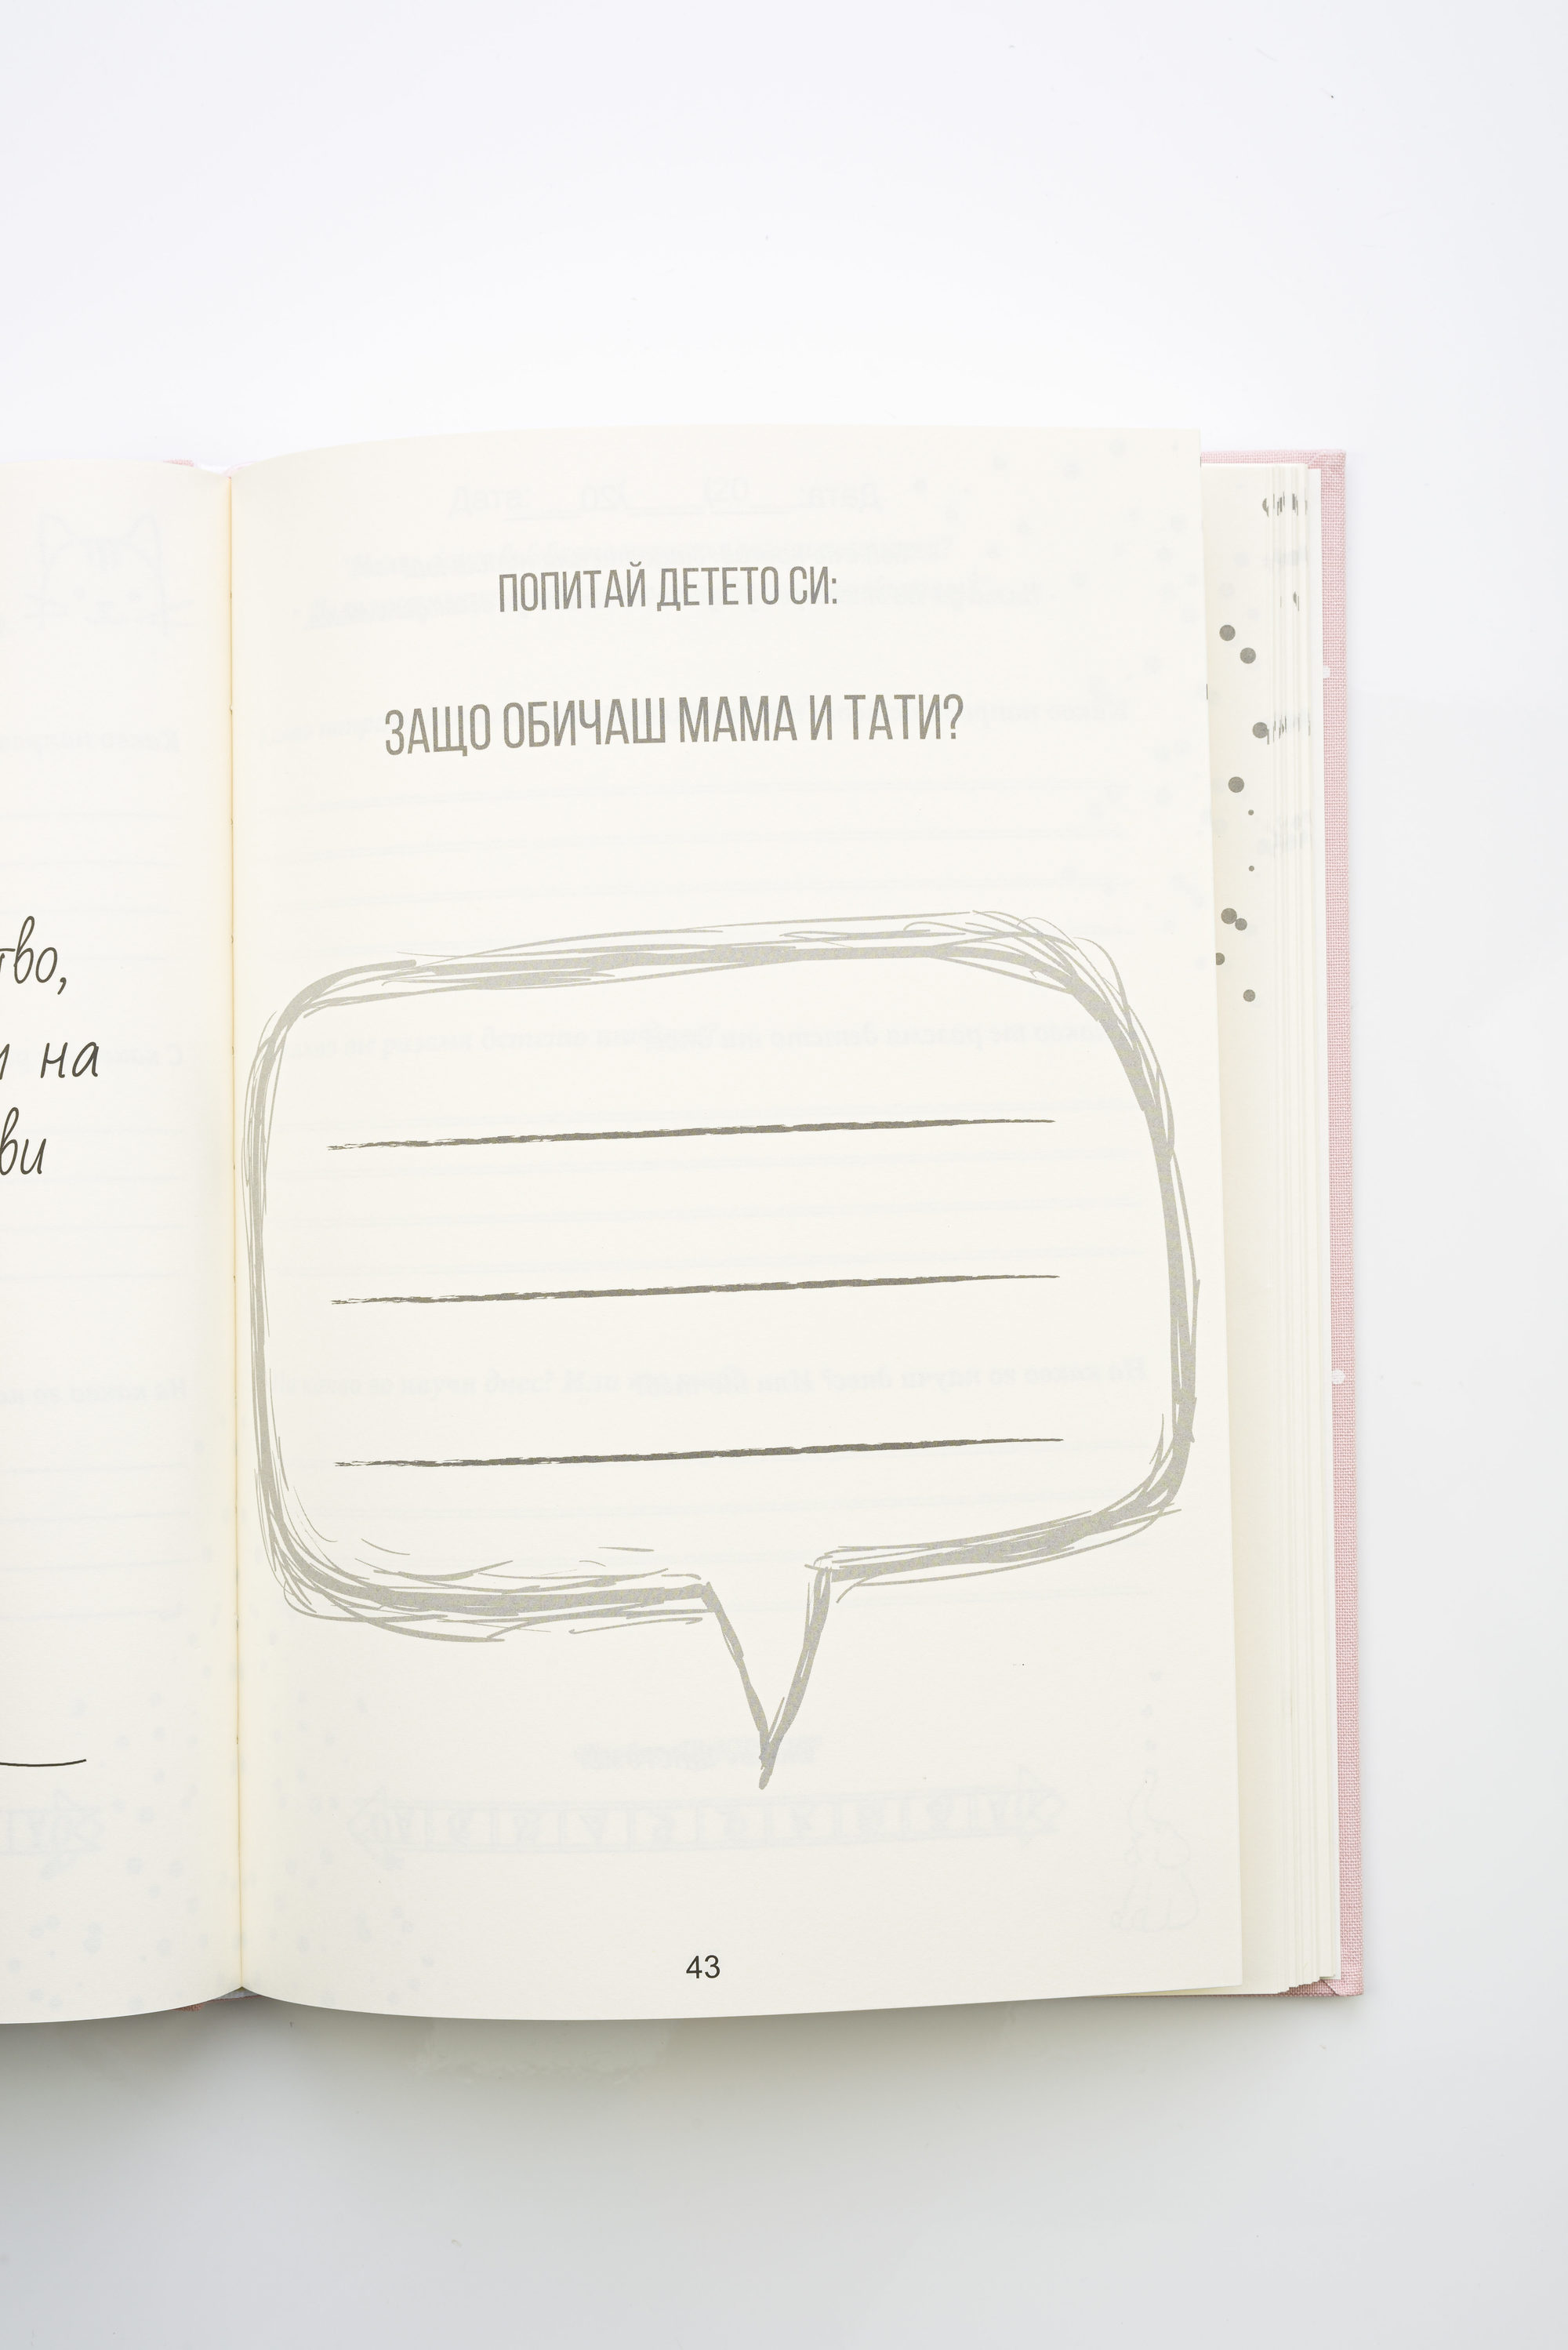 на
ПОПИТАЙ ДЕТЕТО СИ:
ЗАЩО ОБИЧАШ МАМА И ТАТИ?
43